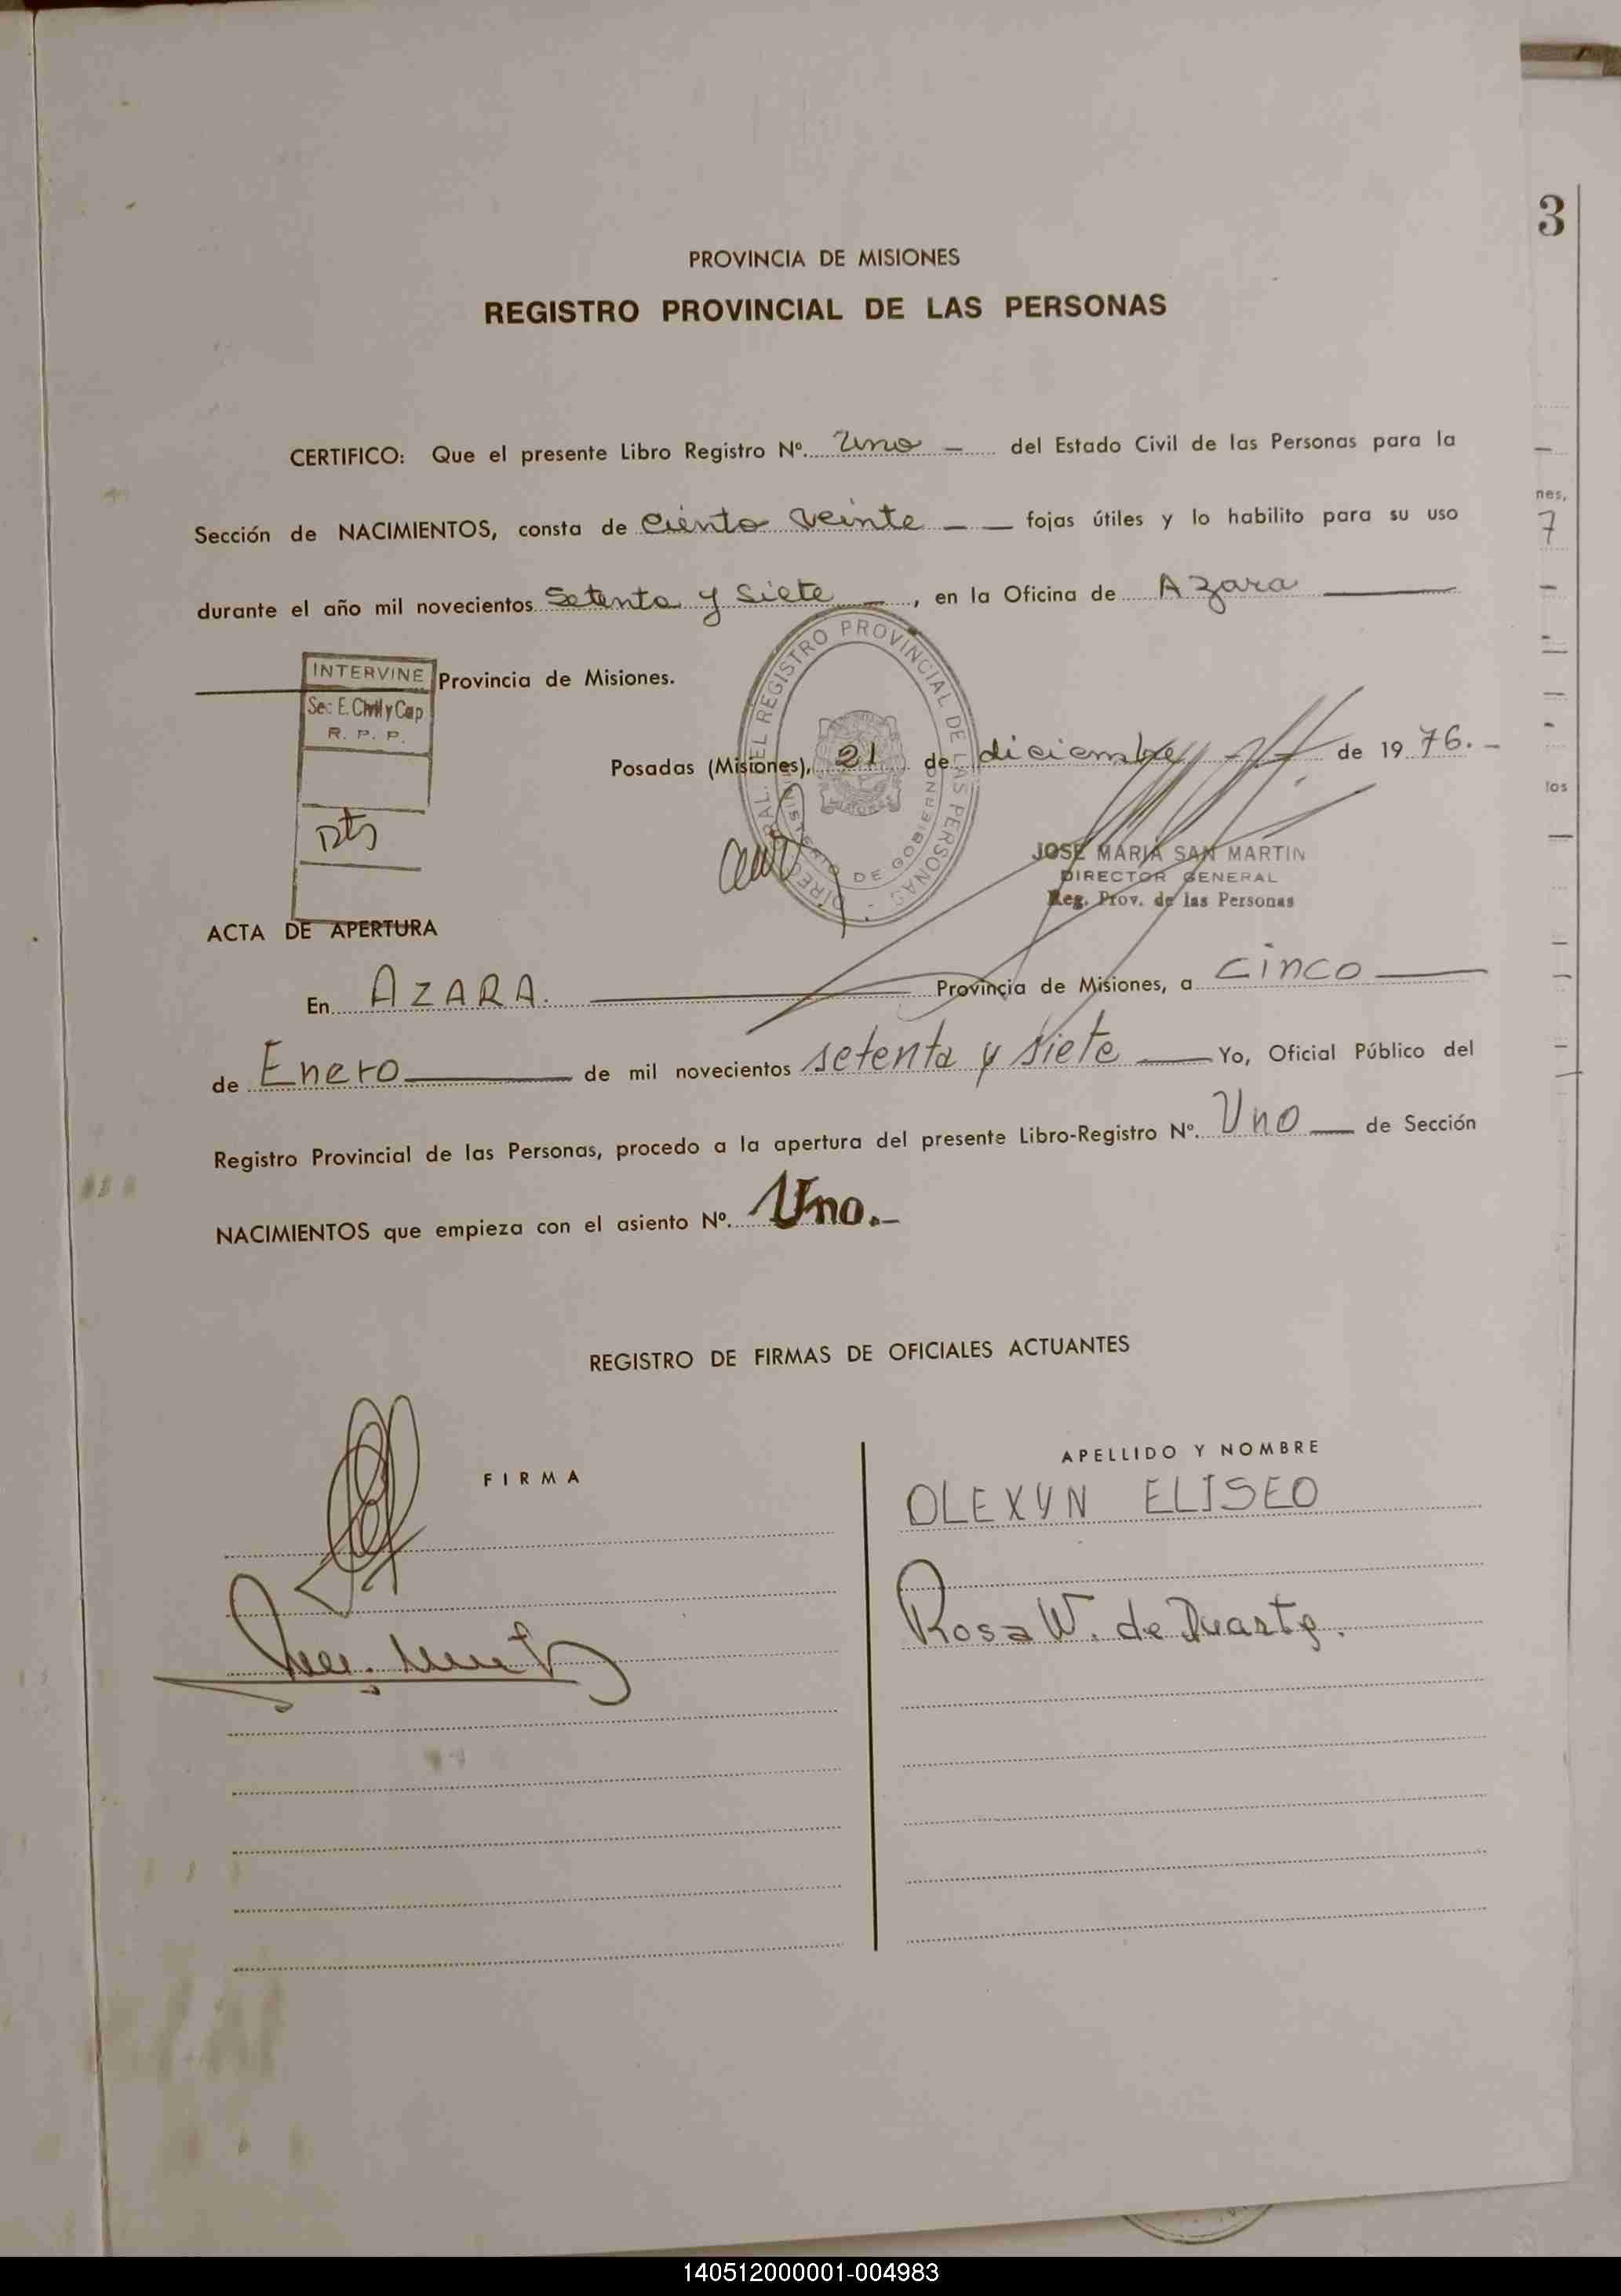 3
PROVINCIA DE MISIONES
REGISTRO PROVINCIAL DE LAS PERSONAS
CERTIFICO: Que el presente Libro Registro Nº. Uno — del Estado Civil de las Personas para la
Sección de NACIMIENTOS, consta de Ciento Veinte — — fojas útiles y lo habilito para su uso
durante el año mil novecientos Setenta y Siete —, en la Oficina de Azara —
Provincia de Misiones.
INTERVINE
Sec. E. Civil y Cap
R. P. P.
Posadas (Misiones), 21 de diciembre de 1976.-
DIRECCION GRAL. DEL REGISTRO PROVINCIAL DE LAS PERSONAS
MINISTERIO DE GOBIERNO
JOSE MARIA SAN MARTIN
DIRECTOR GENERAL
Reg. Prov. de las Personas
ACTA DE APERTURA
En AZARA. — Provincia de Misiones, a cinco —
de Enero — de mil novecientos setenta y siete — Yo, Oficial Público del
Registro Provincial de las Personas, procedo a la apertura del presente Libro-Registro Nº. Uno — de Sección
NACIMIENTOS que empieza con el asiento Nº. Uno.-
REGISTRO DE FIRMAS DE OFICIALES ACTUANTES
FIRMA
APELLIDO Y NOMBRE
OLEXYN ELISEO
Rosa W. de Duarte.
nes,
7
los
140512000001-004983